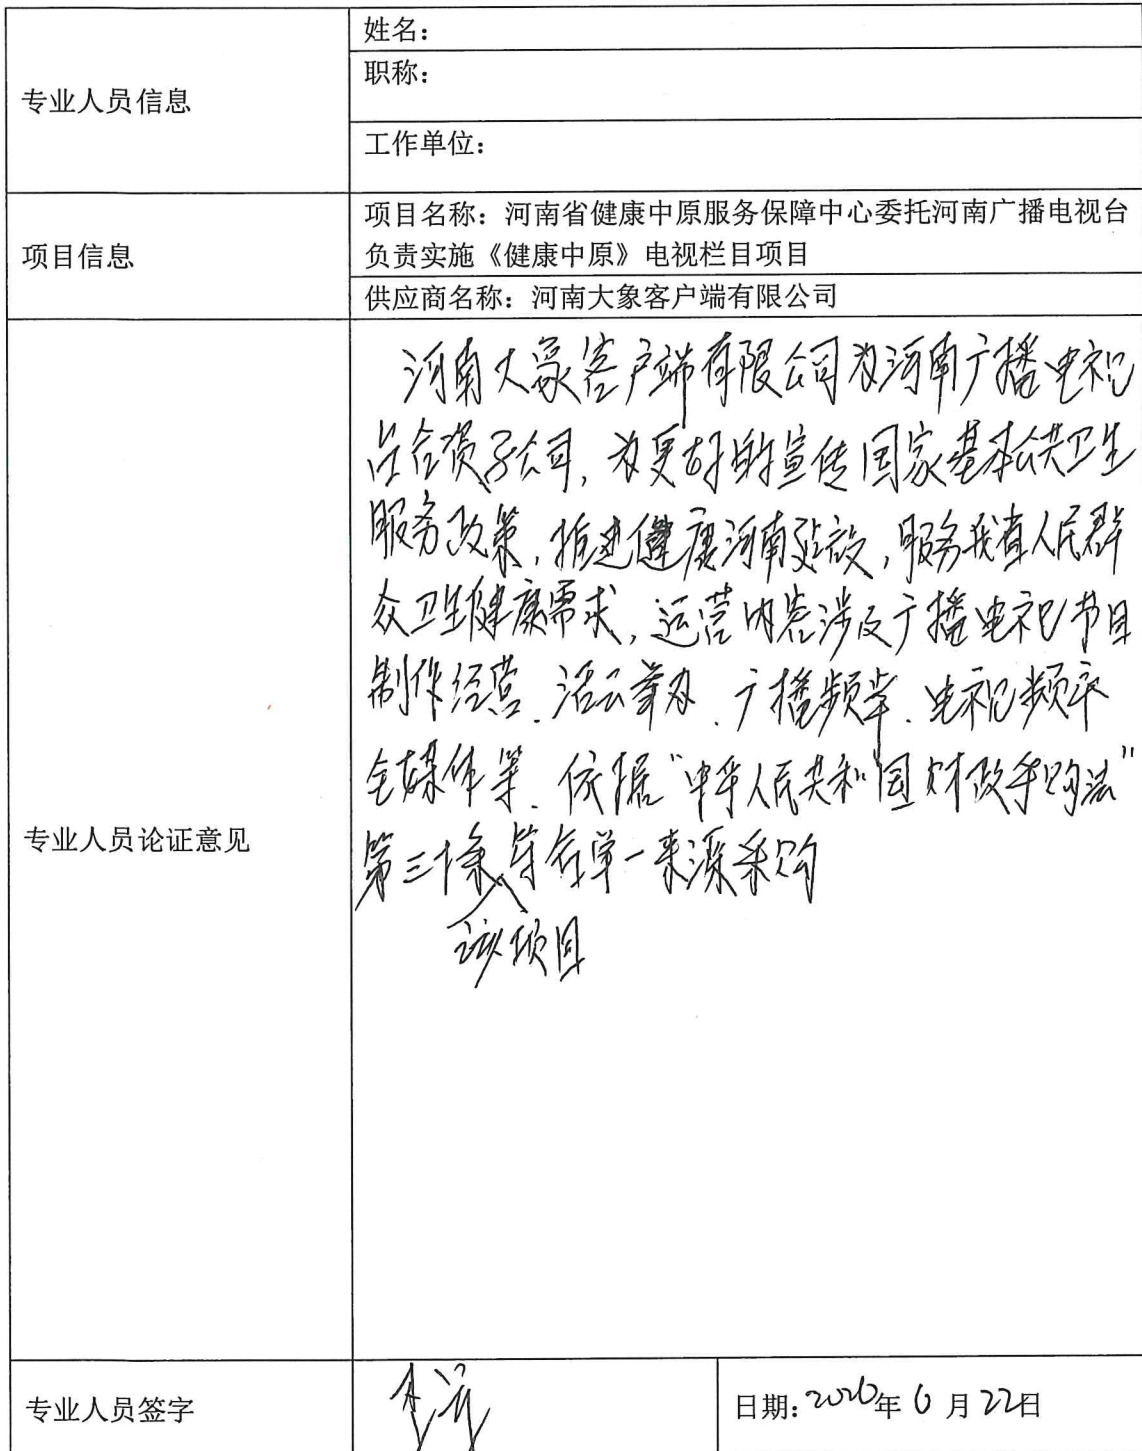 专业人员信息
姓名：
职称：
工作单位：
项目信息
项目名称：河南省健康中原服务保障中心委托河南广播电视台
负责实施《健康中原》电视栏目项目
供应商名称：河南大象客户端有限公司
专业人员论证意见
河南大象客户端有限公司为河南广播电视
台全资子公司，为更好的宣传国家基本公共卫生
服务政策，推进健康河南建设，服务我省人民群
众卫生健康需求，运营内容涉及广播电视节目
制作经营、活动举办、广播频率、电视频率
全媒体等、依据“中华人民共和国财政采购法”
第三十条符合单一来源采购
该项目
专业人员签字
日期：年6月22日